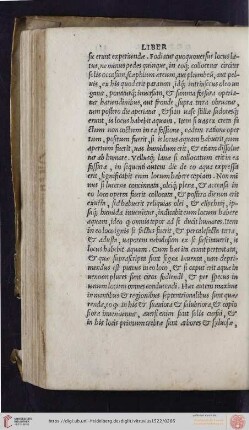 LIBER
sic erunt experiundæ. Fodiatur quoquouersus locus la-
tus, ne minus pedes quinque, in eoq; collocetur circiter
solis occasum scaphium æreum, aut plumbeum, aut pel-
uis, ex his quod erit paratum, idq; intrinsecus oleo un-
gatur, ponaturq; inuersum, & summa fossura operia-
tur harundinibus, aut fronde, supra terra obruatur,
tum postero die aperiatur, & si in uase stillæ sudoresq;
erunt, is locus habebit aquam. Item si uas ex creta fa-
ctum non coctum in ea fossione, eadem ratione oper-
tum, positum fuerit, si is locus aquam habuerit, cum
apertum fuerit, uas humidum erit, & etiam dissolue-
tur ab humore. Vellusq; lanæ si collocatum erit in ea
fossura, in sequenti autem die de eo aqua expressa
erit, significabit eum locum habere copiam. Non mi-
nus si lucerna concinnata, oleiq; plena, & accensa in
eo loco operta fuerit collocata, & postero die non erit
exusta, sed habuerit reliquias olei, & ellychnij, ip-
saq; humida inuenietur, indicabit eum locum habere
aquam, ideo q omnis tepor ad se ducit humores. Item
in eo loco ignis si factus fuerit, & percalefacta terra,
& adusta, uaporem nebulosum ex se suscitauerit, is
locus habebit aquam. Cum hæc ita erunt pertentata,
& quæ suprascripta sunt signa inuenta, tum depri-
mendus est puteus in eo loco, & si caput erit aquæ in-
uentum plures sunt circa fodiendi, & per specus in
unum locum omnes conducendi. Hæc autem maxime
in montibus & regionibus septentrionalibus sunt quæ-
renda, eo q in his & suauiora, & salubriora, & copio-
siora inueniuntur, auersi enim sunt solis cursui, &
in his locis primum crebræ sunt arbores & syluosæ,